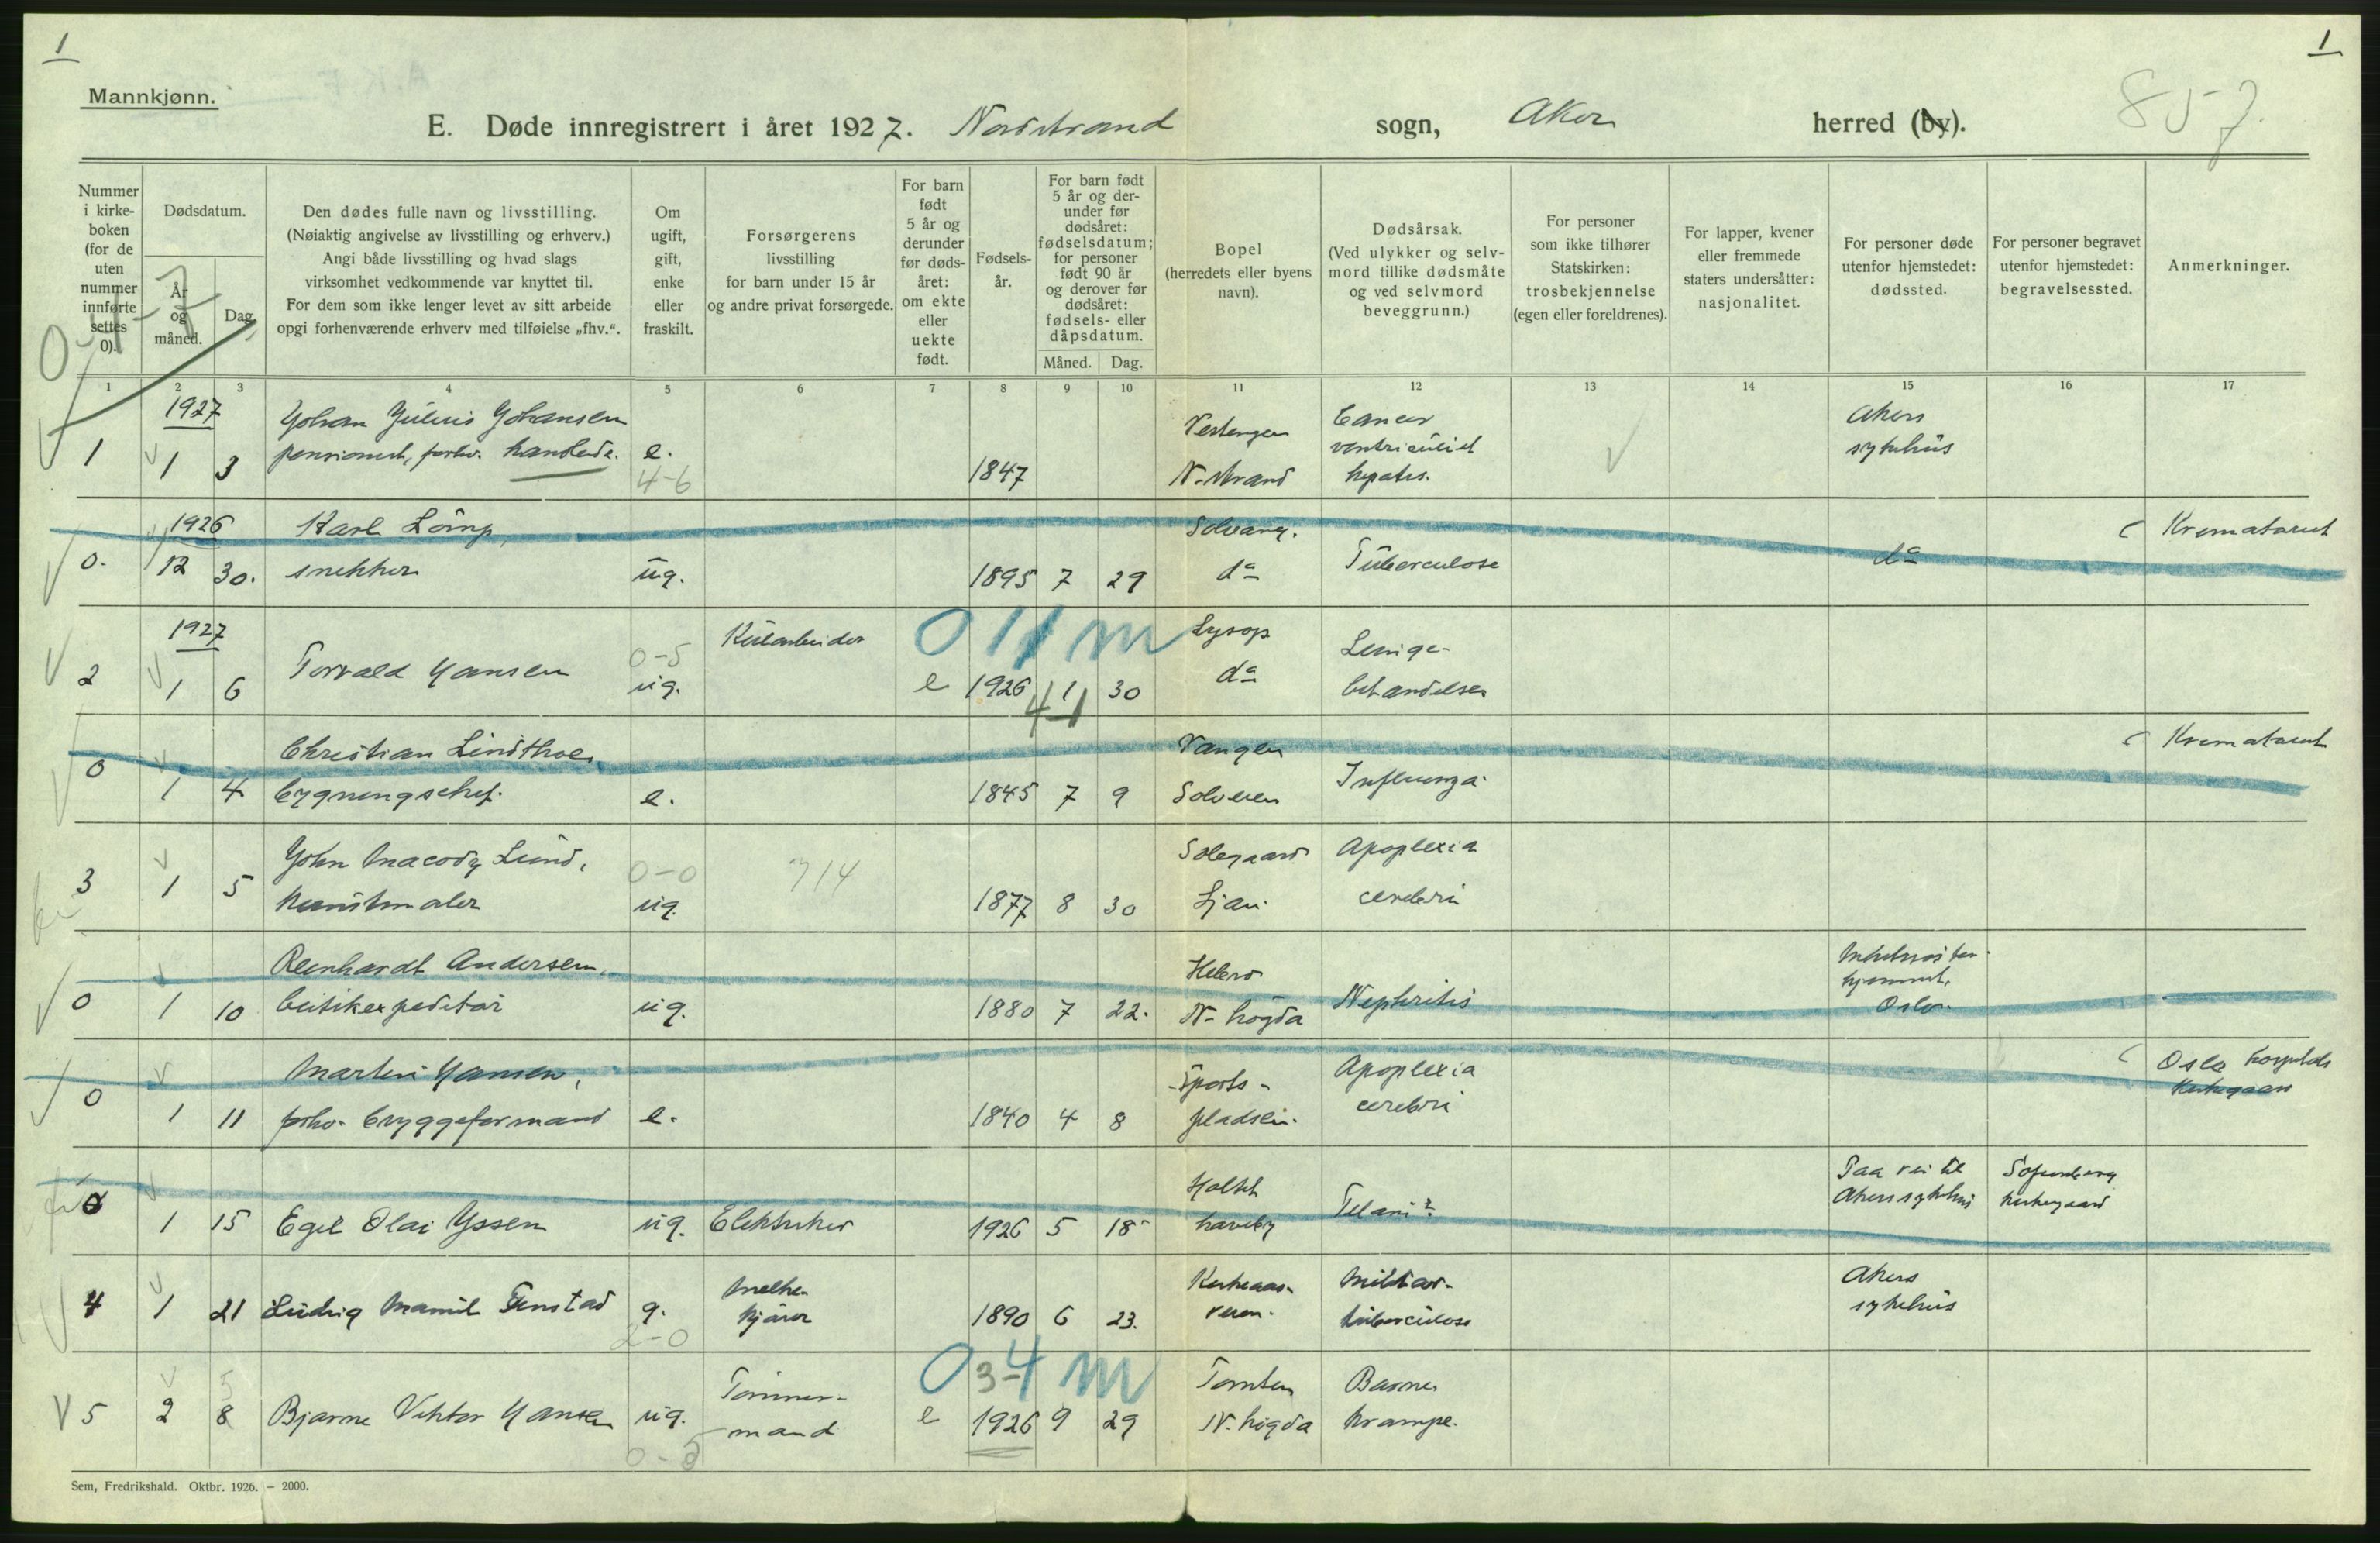 1
1
Mannkjønn.
E. Døde innregistrert i året 1927. Nordstrand sogn, Aker herred (by).
857.
Nummer i kirke-boken (for de uten nummer innførte settes 0).
Dødsdatum.
År og måned.
Dag.
Den dødes fulle navn og livsstilling.
(Nøiaktig angivelse av livsstilling og erhverv.)
Angi både livsstilling og hvad slags
virksomhet vedkommende var knyttet til.
For dem som ikke lenger levet av sitt arbeide
opgi forhenværende erhverv med tilføielse „fhv.“.
Om ugift, gift, enke eller fraskilt.
Forsørgerens
livsstilling
for barn under 15 år
og andre privat forsørgede.
For barn født 5 år og derunder før døds-året: om ekte eller uekte født.
Fødsels-år.
For barn født 5 år og der-under før dødsåret: fødselsdatum; for personer født 90 år og derover før dødsåret: fødsels- eller dåpsdatum.
Måned.
Dag.
Bopel
(herredets eller byens
navn).
Dødsårsak.
(Ved ulykker og selv-
mord tillike dødsmåte
og ved selvmord
beveggrunn.)
For personer
som ikke tilhører
Statskirken:
trosbekjennelse
(egen eller foreldrenes).
For lapper, kvener
eller fremmede
staters undersåtter:
nasjonalitet.
For personer døde
utenfor hjemstedet:
dødssted.
For personer begravet
utenfor hjemstedet:
begravelsessted.
Anmerkninger.
1 2 3 4 5 6 7 8 9 10 11 12 13 14 15 16 17
1927 Johan Julius Johansen Cancer Akers
1 1 3 pensionist, forhv. e. 1847 ventriculi et sykehus
4-6 N. strand hepatis.
1926 Karl Solvang. Krematoriet
0. 12 30. snekker ug. 1895 7 29 do Tuberculose do
1927 011 m
2 1 6 Torvald Hansen 0-5 ug. e 1926 1 30 do
41
Christian Vangen Krematoriet
0 1 4 bygningschef. e. 1845 7 9 Influenza
John Macody Lund, 0-0 314 Solegaard Apoplexia
3 1 5 Kunstmaler ug. 1877 8 30 Ljan. cerebri
Reinhardt Andersen, hjemmet,
0 1 10 ug. 1880 7 22. N. høgda Nephritis Oslo.
Martin Hansen, Sports- Apoplexia Oslo hospitals
0 1 11 forhv. bryggeformand e. 1840 4 8 pladsen. cerebri Kirkegaard
Holtet Paa vei til Sofienberg
0 1 15 Egil Olai ug. Elektriker 1926 5 18 haveby Akers sykehus kirkegaard
Melke- Miliar- Akers
4 1 21 Ludvig g. kjører 1890 6 23. veien. tuberculose sykehus
2-0
034 m
5 Tømmer- Tomten Barne
5 2 8 Bjarne Viktor Hansen ug. mand e 1926 9 29 N. høgda krampe.
0-5
Sem, Fredrikshald. Oktbr. 1926. — 2000.